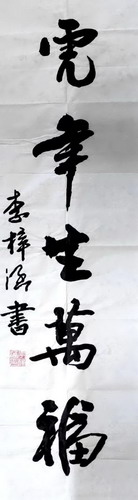 虎年生萬福
李梓涵書